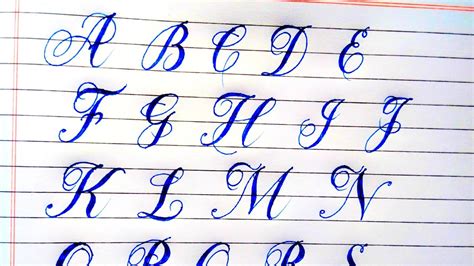 A B C D E
F G H I J
K L M N
O P Q R S